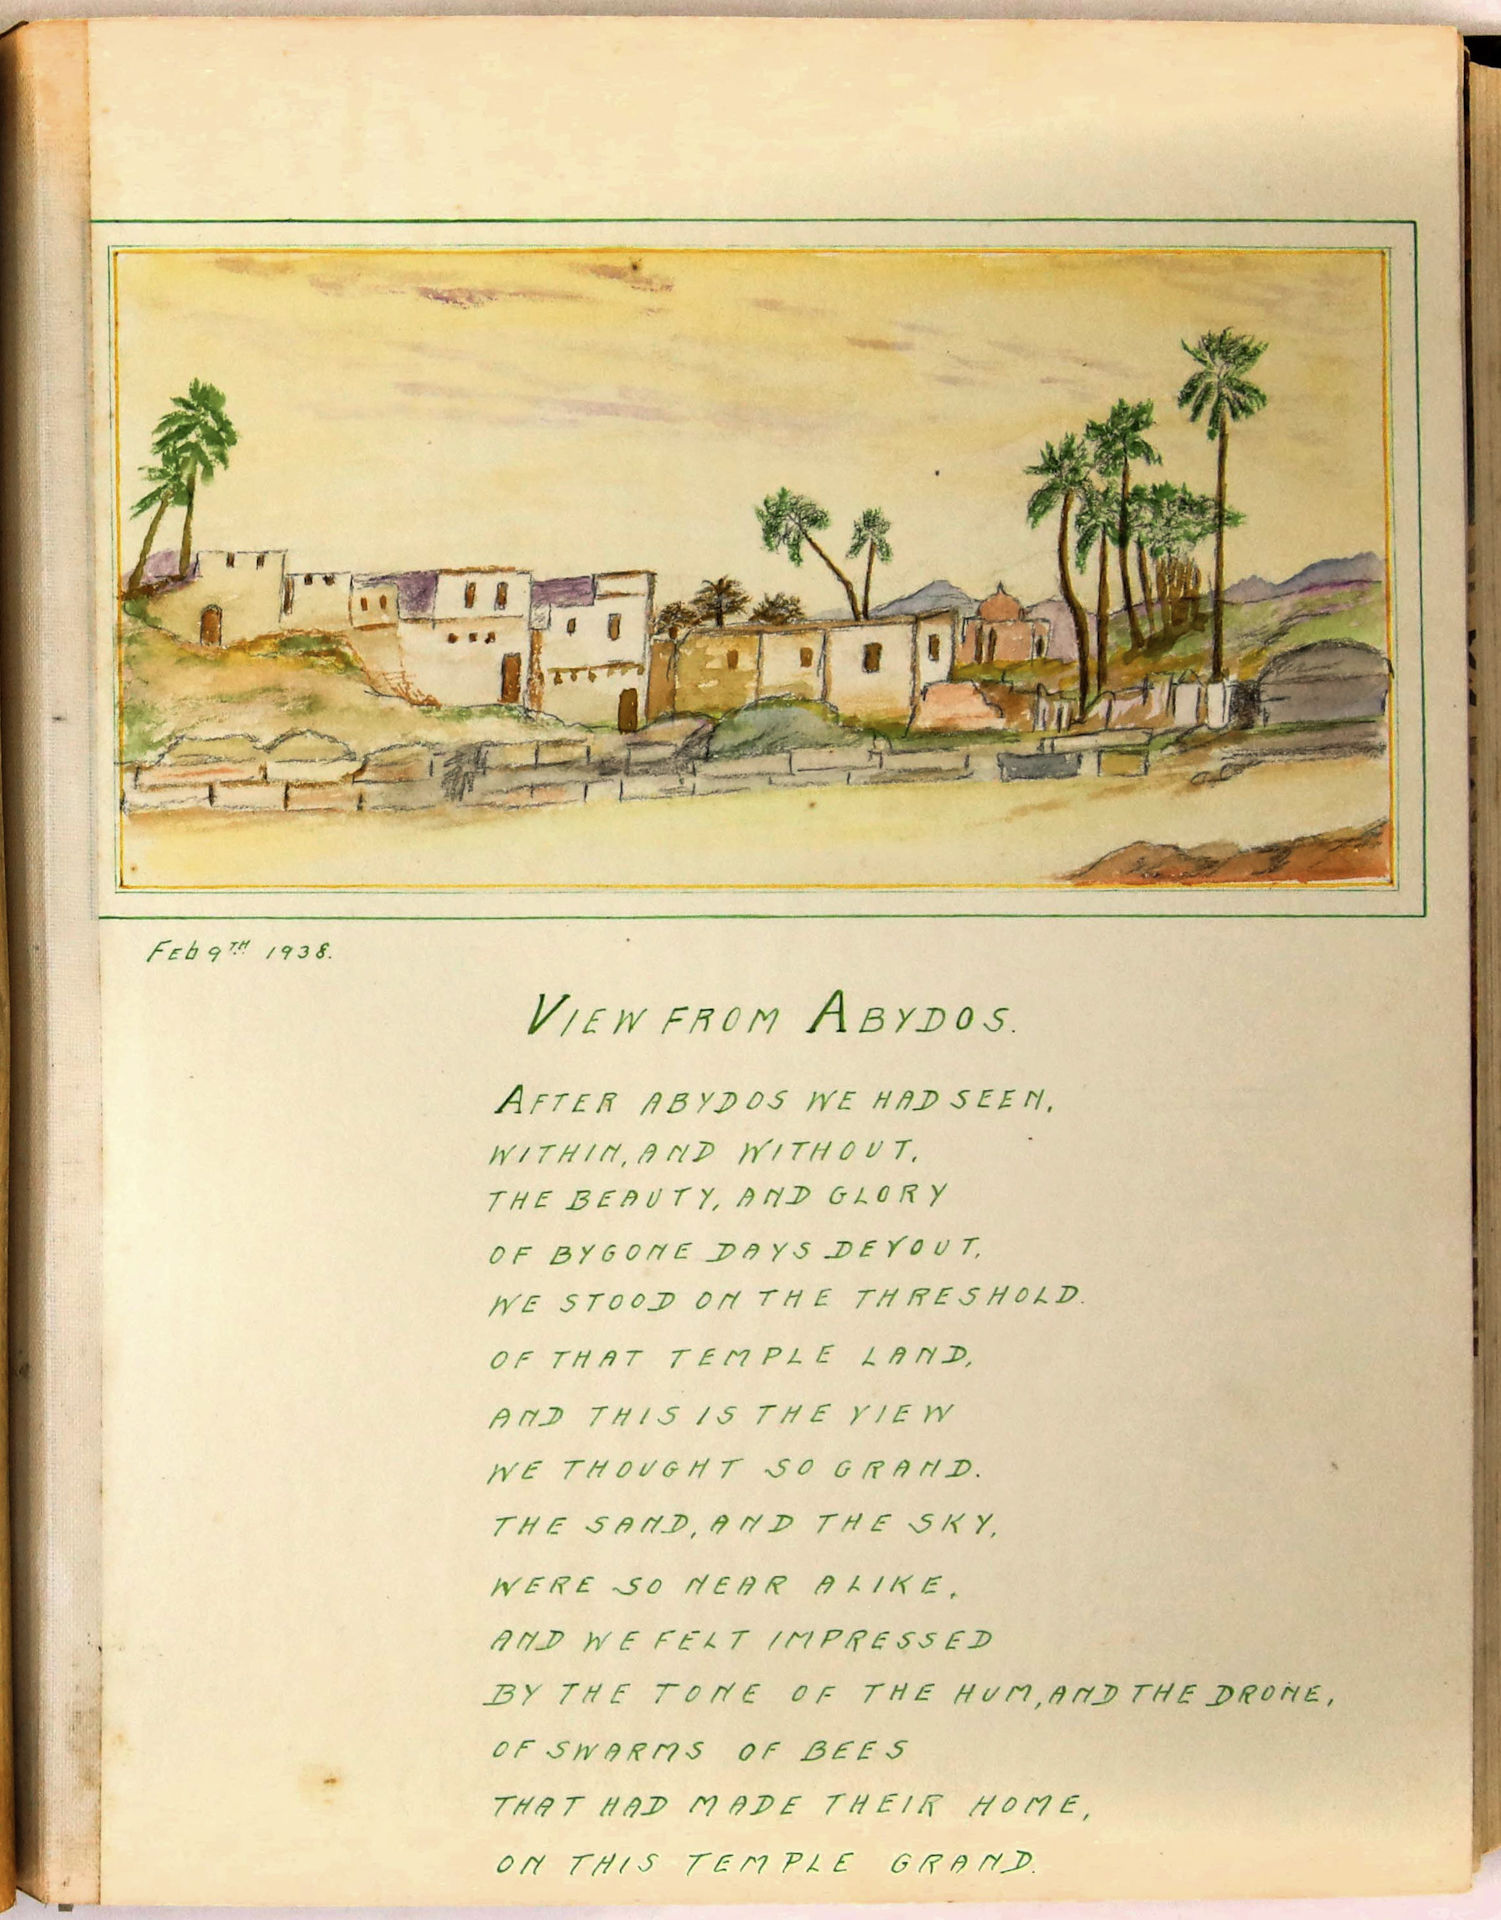 FEb 9TH 1938.
VIEW FROM ABYDOS.
AFTER ABYDOS WE HAD SEEN,
WITHIN, AND WITHOUT,
THE BEAUTY, AND GLORY
OF BYGONE DAYS DEVOUT,
WE STOOD ON THE THRESHOLD.
OF THAT TEMPLE LAND,
AND THIS IS THE VIEW
WE THOUGHT SO GRAND.
THE SAND, AND THE SKY,
WERE SO NEAR ALIKE,
AND WE FELT IMPRESSED
BY THE TONE OF THE HUM, AND THE DRONE,
OF SWARMS OF BEES
THAT HAD MADE THEIR HOME,
ON THIS TEMPLE GRAND.